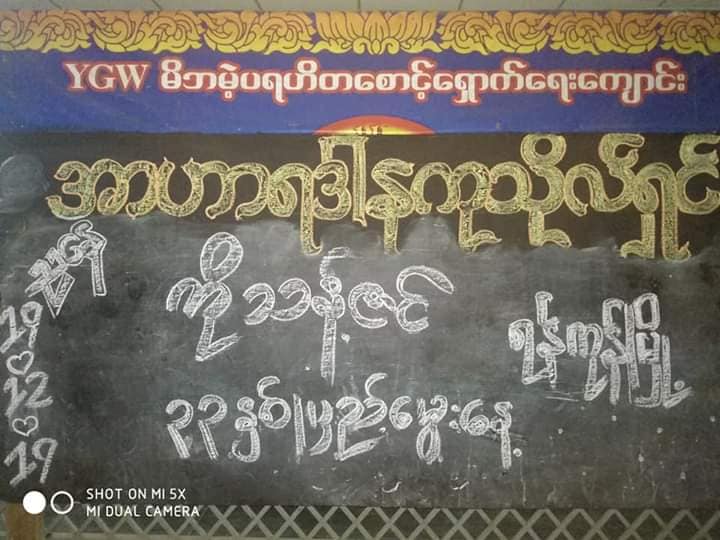 YGW မိဘမဲ့ပရဟိတစောင့်ရှောက်ရေးကျောင်း
အာဟာရဒါနကုသိုလ်ရှင်
ညနေ
19
12
19
ကိုသန်ဇင်
ရန်ကုန်မြို့
၃၃နှစ်ပြည့်မွေးနေ့
SHOT ON MI 5X
MI DUAL CAMERA